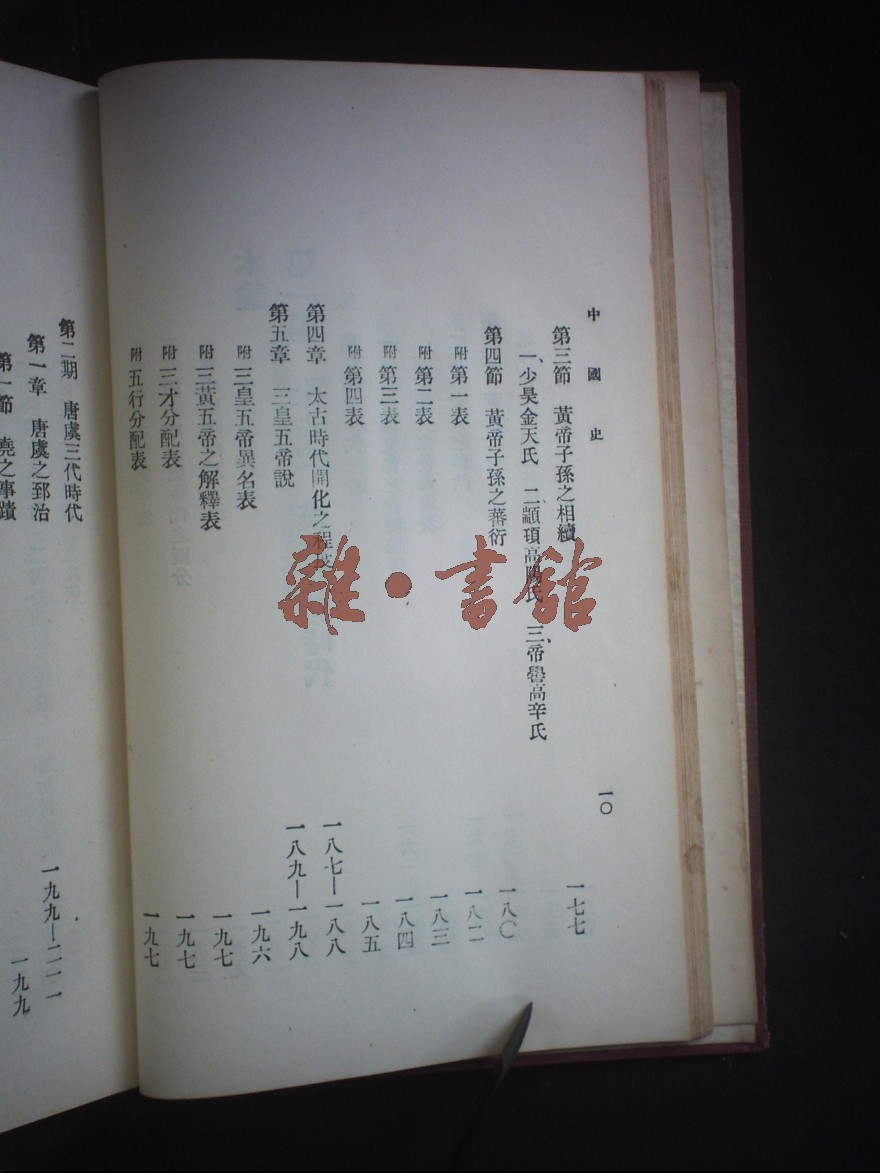 中國史
一〇
第三節　黃帝子孫之相續　一七七
一、少昊金天氏　二、顓頊高陽氏　三、帝嚳高辛氏
第四節　黃帝子孫之蕃衍　一八〇
附 第一表　一八二
附 第二表　一八三
附 第三表　一八四
附 第四表　一八五
第四章　太古時代開化之程度　一八七—一八八
第五章　三皇五帝說　一八九—一九八
附 三皇五帝異名表　一九六
附 三黃五帝之解釋表　一九七
附 三才分配表　一九七
附 五行分配表　一九七
第二期　唐虞三代時代
第一章　唐虞之郅治　一九九—二一一
第一節　堯之事蹟　一九九
雜·書館